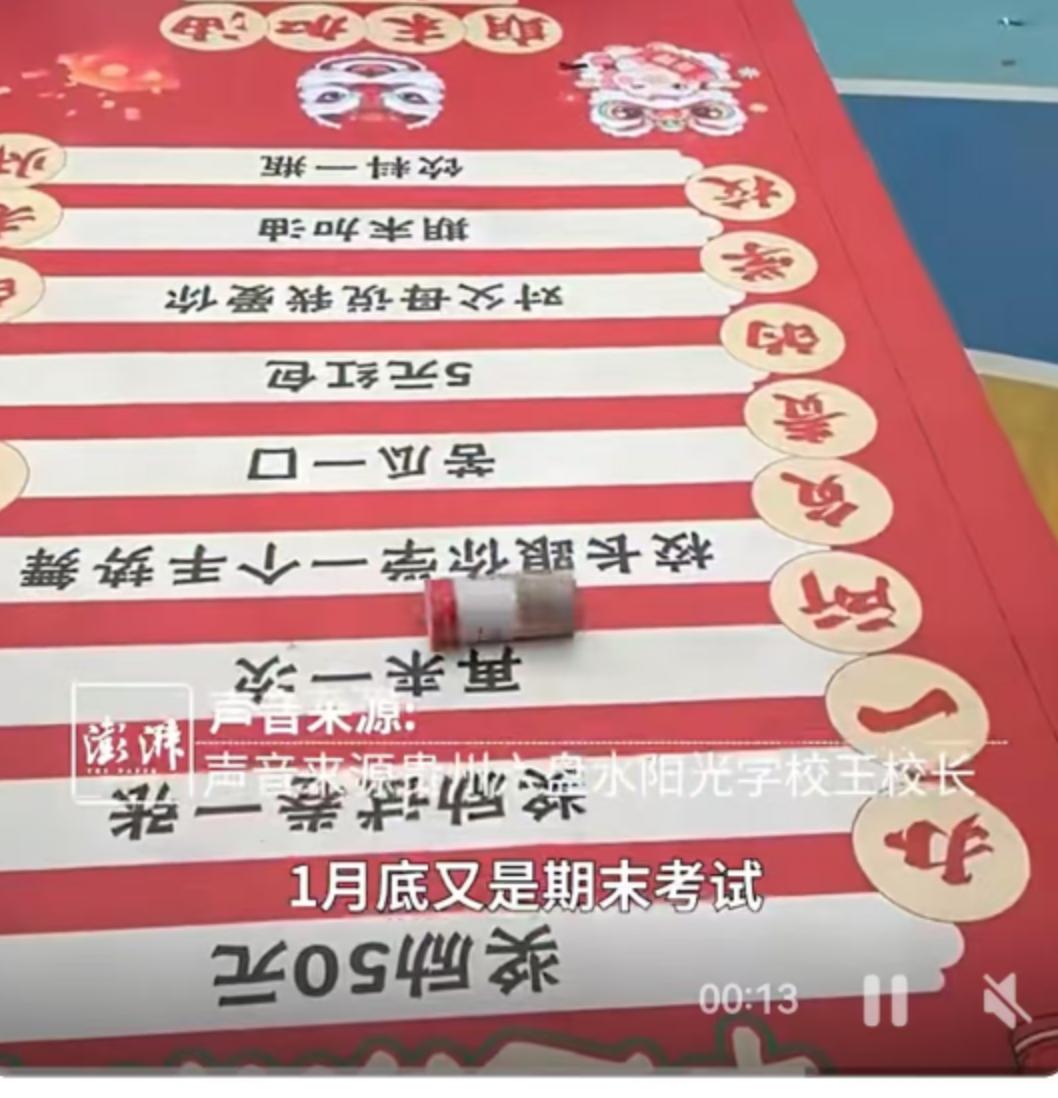 期末加油
饮料一瓶
期末加油
对父母说我爱你
5元红包
苦瓜一口
校长跟你学一个手势舞
再来一次
奖励试卷一张
奖励50元
办一所负责的学校
澎湃
THE PAPER
声音来源:
声音来源贵州六盘水阳光学校王校长
1月底又是期末考试
00:13